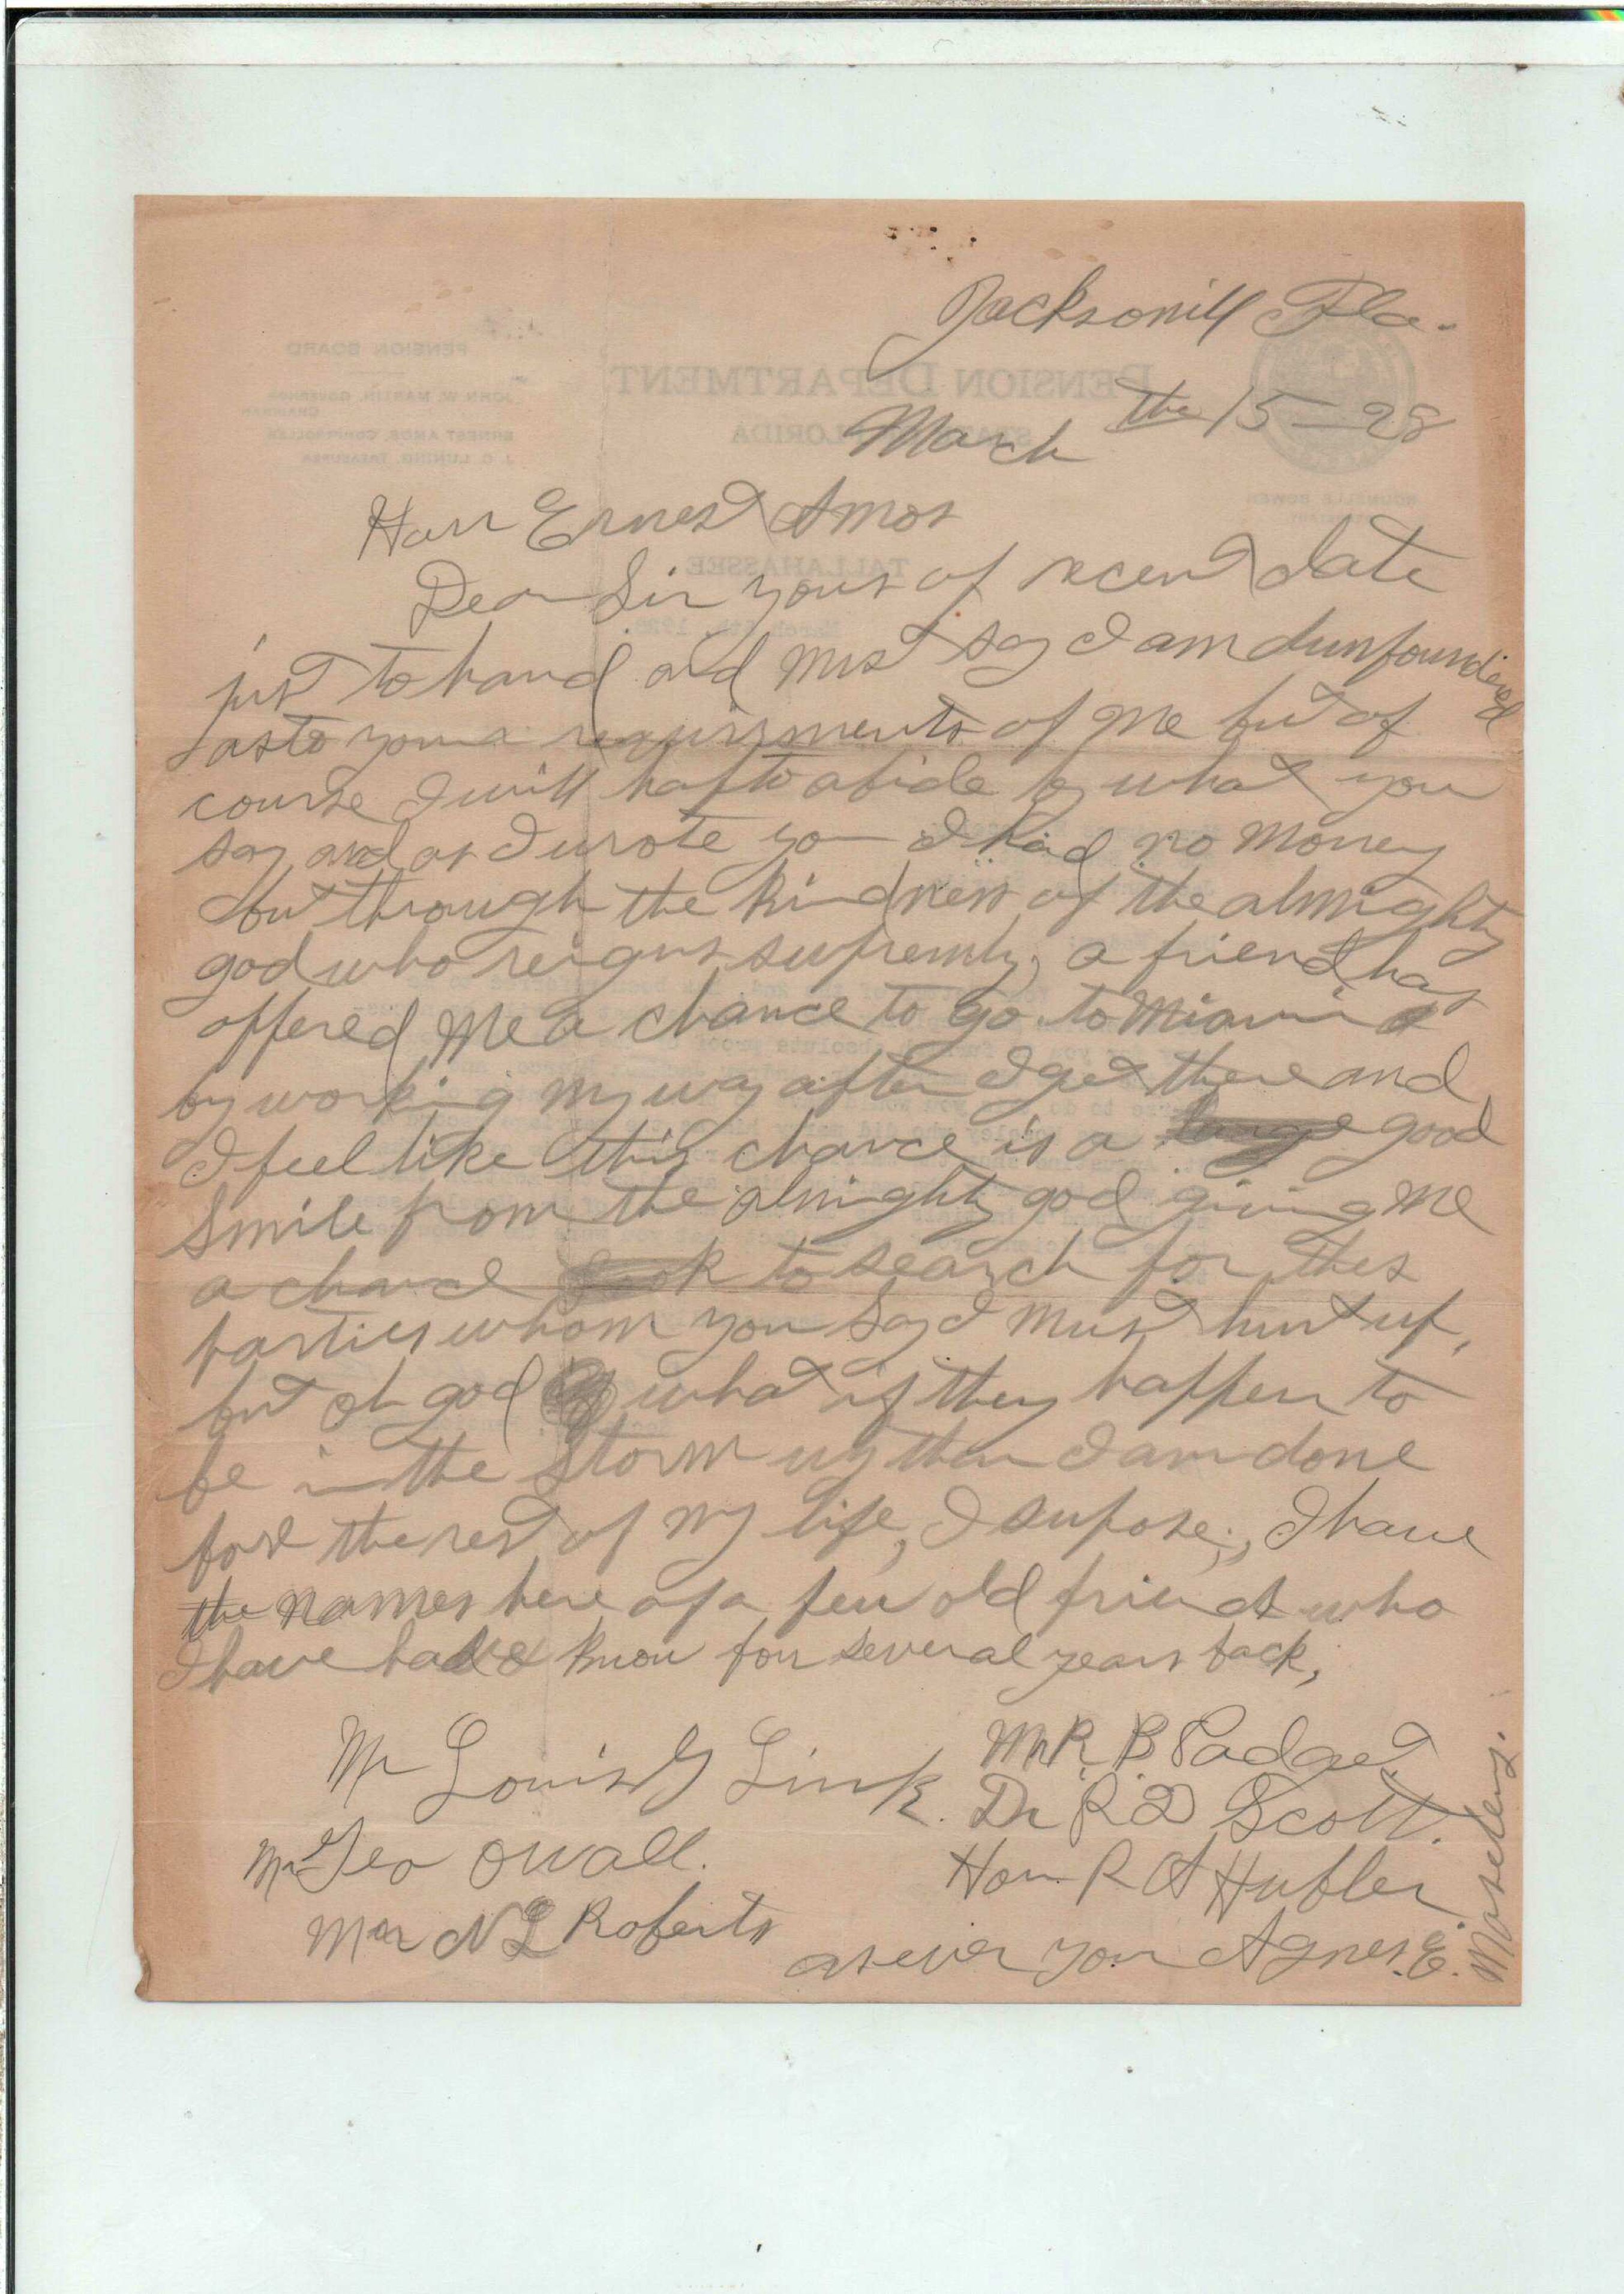 Jacksonvill Fla.
March the 15 - 28
Hon Ernest Amos
Dear Sir yours of recent date
just to hand and must say I am dunfoundered
as to your requirsments of me but of
course I will hafto abide by what you
say and as I wrote you I had no money
but through the kindness of the almighty
god who reigns supremly, a friend has
offered me a chance to go to Miami
by working my way after I get there and
I feel like this chance is a good
smile from the almighty god giving me
a chance to search for thes
parties whom you say I must hunt up,
but oh god what if they happen to
be in the storm why then I am done
for the rest of my life, I supose, I have
the names here of a few old friends who
I have know for several years back,
Mr Louis G Link. Mr R. B Padget
Dr R D Scott.
Mr Geo O Wall. Hon R A Hubler
Mr N L Roberts
as ever your Agnes. E. Moseley.
PENSION BOARD
JOHN W. MARTIN, GOVERNOR
CHAIRMAN
ERNEST AMOS, COMPTROLLER
J. C. LUNING, TREASURER
PENSION DEPARTMENT
STATE OF FLORIDA
TALLAHASSEE